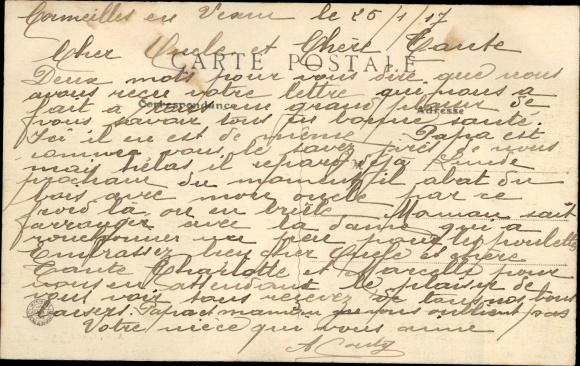 Cormeilles en Vexin le 25/1/17
Cher Oncle et Chère Tante
CARTE POSTALE
Deux mots pour vous dire que nous
avons reçu votre lettre qui nous a
fait à tous un grand plaisir de
Correspondance
Adresse
vous savoir tous en bonne santé.
Ici il en est de même Papa est
comme vous le savez près de nous
mais hélas il repart
prochain du moment il abat du
bois avec mon oncle par ce
froid là on en brûle Maman sait
arranger avec la dame qui a
un peu pour les poulettes
Embrassez bien cher Oncle et chère
Tante Charlotte et Marcelle pour
nous en attendant le plaisir de
vous voir tous recevez de tous nos bons
baisers. Papa et maman ne vous oublient pas
Votre nièce qui vous aime
A